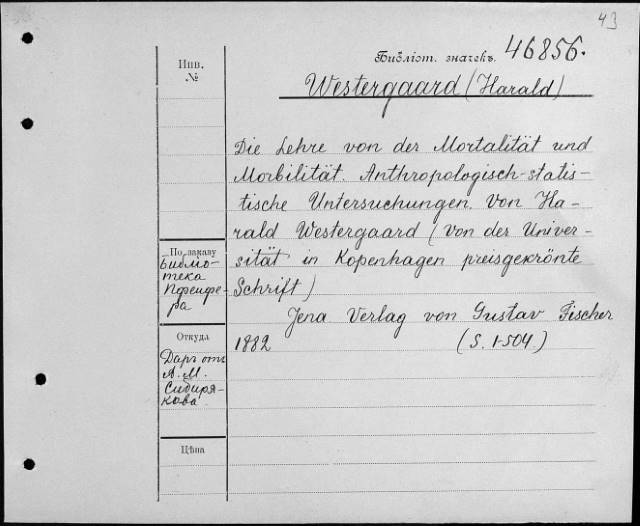 43
Инв.
№
Библіот. значекъ. 46856.
Westergaard (Harald)
Die Lehre von der Mortalität und
Morbilität. Anthropologisch-statis-
tische Untersuchungen. Von Ha-
rald Westergaard (Von der Univer-
sität in Kopenhagen preisgekrönte
Schrift)
Jena Verlag von Gustav Fischer
1882 (S. 1-504.)
По заказу
Библіо-
тека
Пфейфе-
ра
Откуда
Даръ отъ
А. М.
Сибиря-
кова.
Цѣна